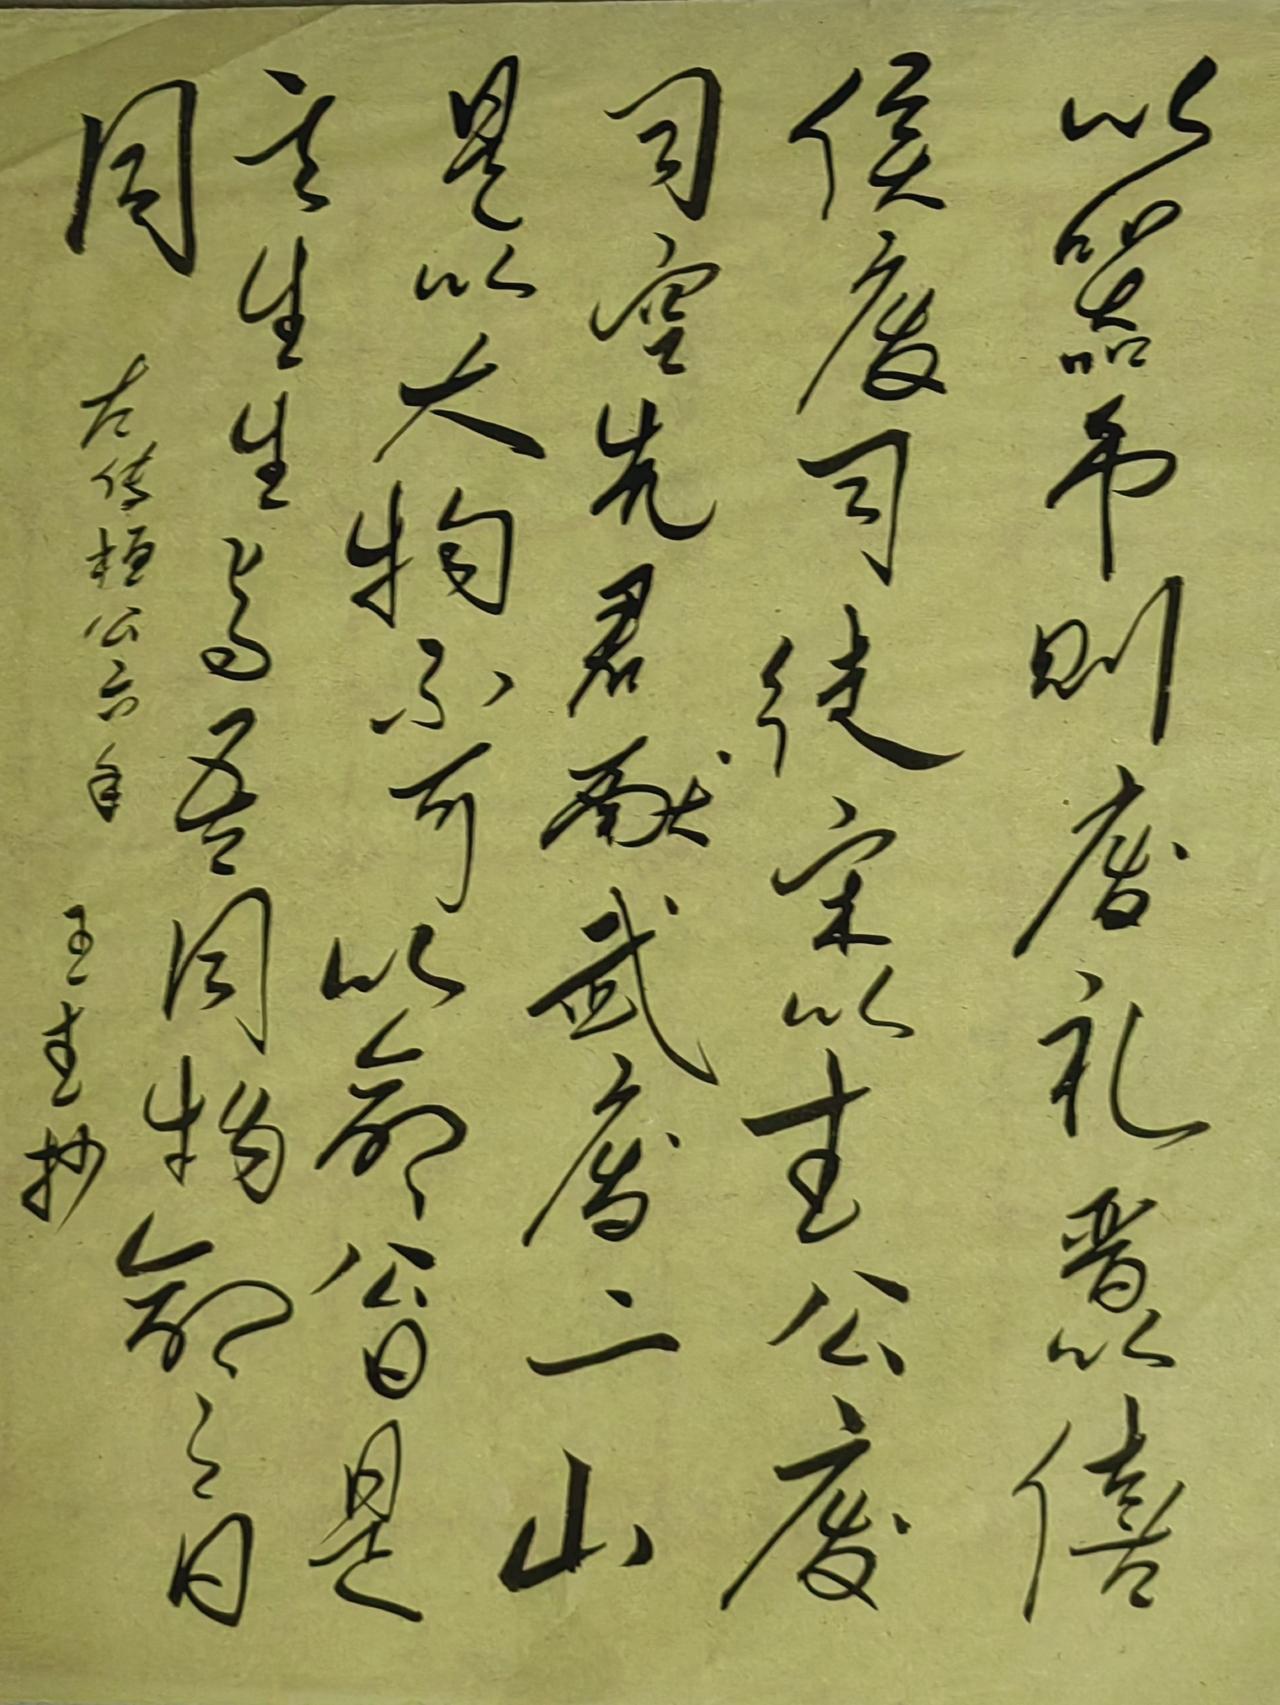 以器币则废礼晋以僖
侯废司徒宋以武公废
司空先君献武废二山
是以大物不可以命公曰是
其生生与吾同物命之曰
同
左传桓公六年 王武抄